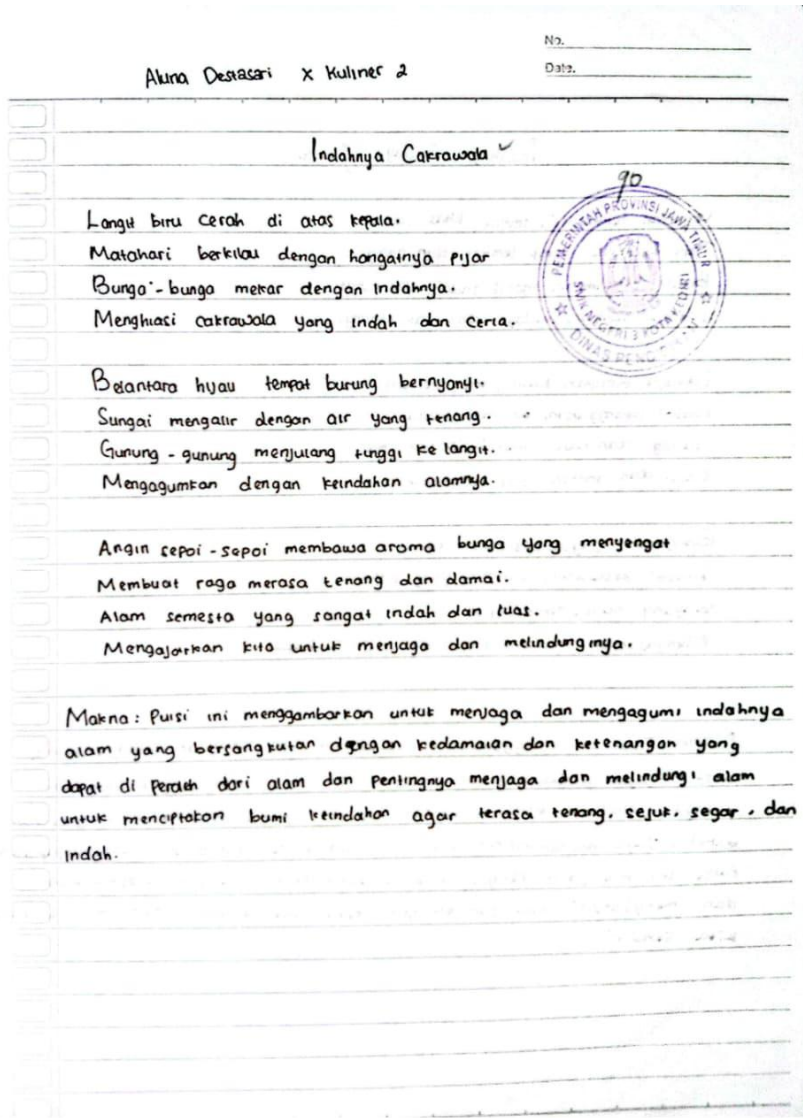 No.
Aluna Destasari X Kuliner 2
Date.
Indahnya Cakrawala
90
PEMERINTAH PROVINSI JAWA TIMUR
NEGERI 3 KOTA KEDIRI
DINAS PENDIDIKAN
Langit biru cerah di atas kepala.
Matahari berkilau dengan hangatnya pijar
Bunga-bunga mekar dengan indahnya.
Menghiasi cakrawala yang indah dan ceria.
Belantara hijau tempat burung bernyanyi.
Sungai mengalir dengan air yang tenang.
Gunung-gunung menjulang tinggi ke langit.
Mengagumkan dengan keindahan alamnya.
Angin sepoi-sepoi membawa aroma bunga yang menyengat
Membuat raga merasa tenang dan damai.
Alam semesta yang sangat indah dan luas.
Mengajarkan kita untuk menjaga dan melindunginya.
Makna: Puisi ini menggambarkan untuk menjaga dan mengagumi indahnya
alam yang bersangkutan dengan kedamaian dan ketenangan yang
dapat di peroleh dari alam dan pentingnya menjaga dan melindungi alam
untuk menciptakan bumi keindahan agar terasa tenang, sejuk, segar, dan
indah.